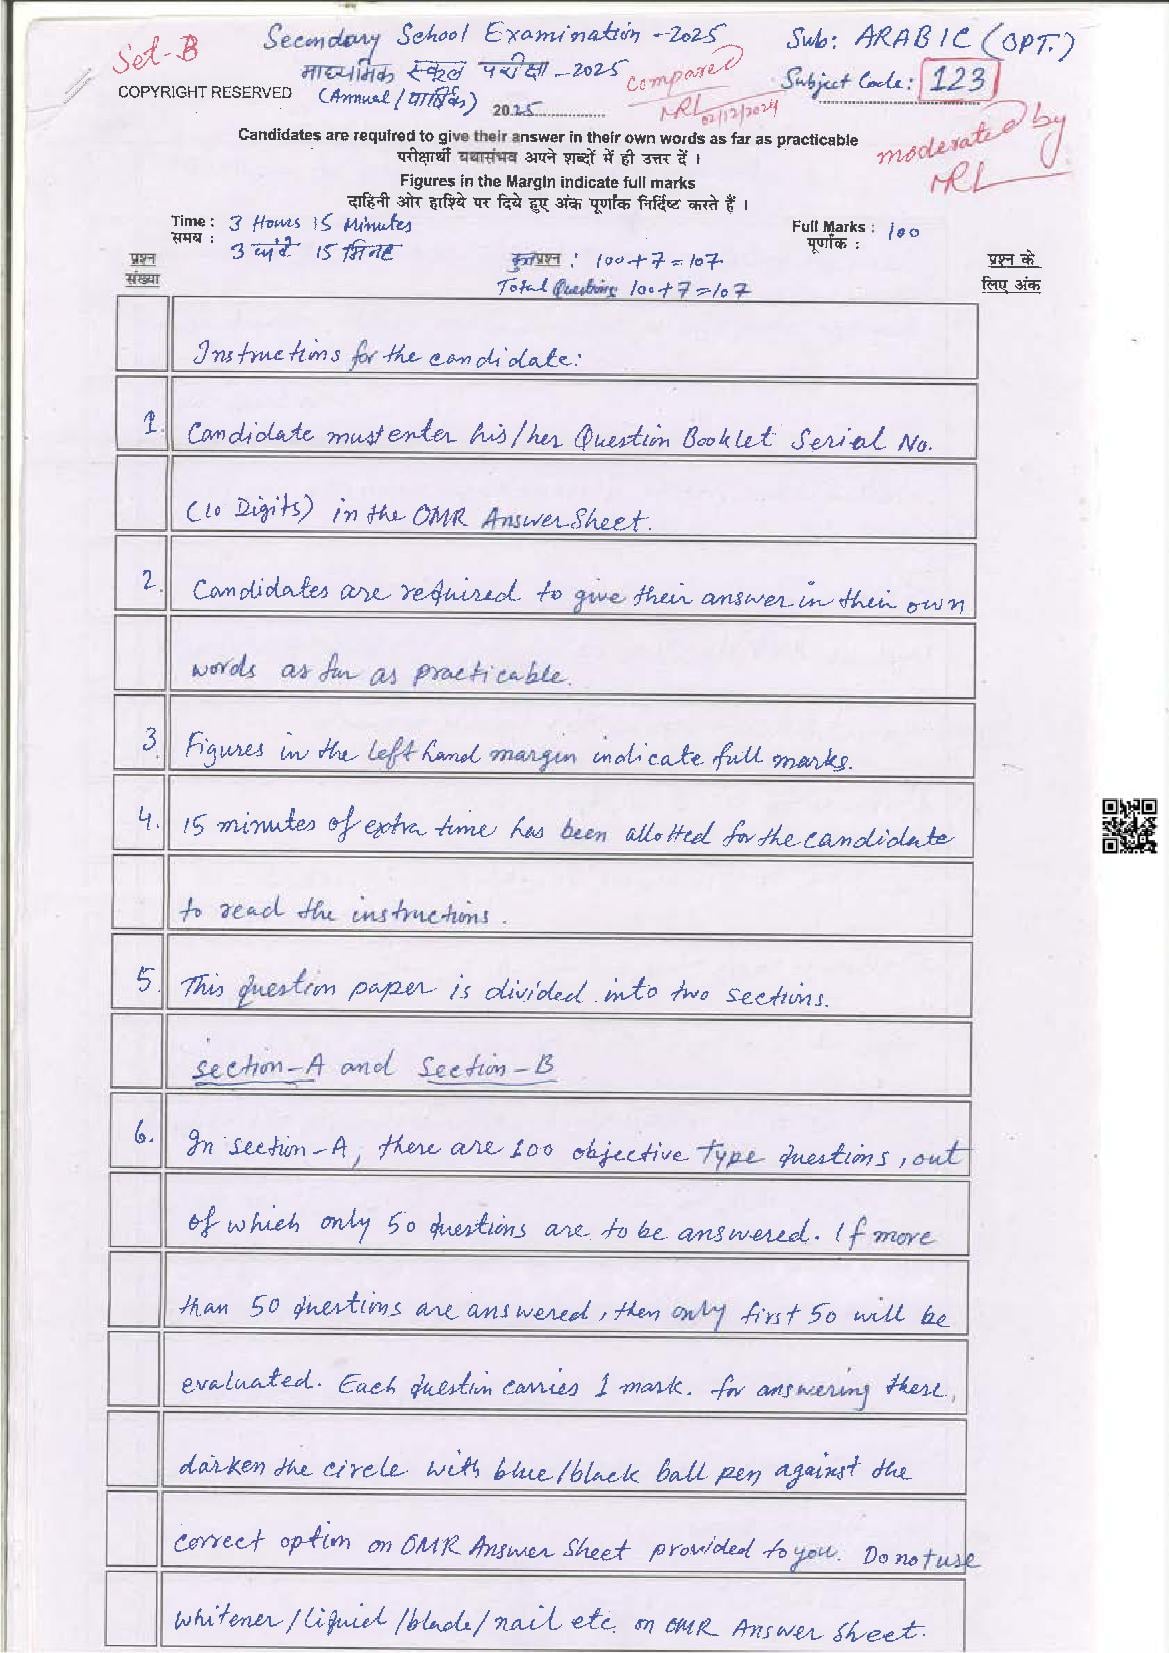 Set-B
Secondary School Examination - 2025
Sub: ARABIC (OPT.)
माध्यमिक स्कूल परीक्षा - 2025
Subject Code: 123
COPYRIGHT RESERVED
(Annual / वार्षिक)
2025
compared
MRL
02/12/2024
moderated by
MRL
Candidates are required to give their answer in their own words as far as practicable
परीक्षार्थी यथासंभव अपने शब्दों में ही उत्तर दें ।
Figures in the Margin indicate full marks
दाहिनी ओर हाशिये पर दिये हुए अंक पूर्णांक निर्दिष्ट करते हैं ।
Time : 3 Hours 15 Minutes
Full Marks : 100
समय : 3 घंटे 15 मिनट
पूर्णांक :
प्रश्न संख्या
कुल प्रश्न : 100+7=107
Total Questions 100+7=107
प्रश्न के
लिए अंक
Instructions for the candidate:
1. Candidate must enter his/her Question Booklet Serial No.
(10 Digits) in the OMR Answer Sheet.
2. Candidates are required to give their answer in their own
words as far as practicable.
3. Figures in the left hand margin indicate full marks.
4. 15 minutes of extra time has been allotted for the candidate
to read the instructions.
5. This question paper is divided into two sections.
section-A and Section-B
6. In section-A, there are 100 objective Type questions, out
of which only 50 questions are to be answered. If more
than 50 questions are answered, then only first 50 will be
evaluated. Each question carries 1 mark. for answering these,
darken the circle with blue/black ball pen against the
correct option on OMR Answer Sheet provided to you. Do not use
whitener/liquid/blade/nail etc. on OMR Answer Sheet.